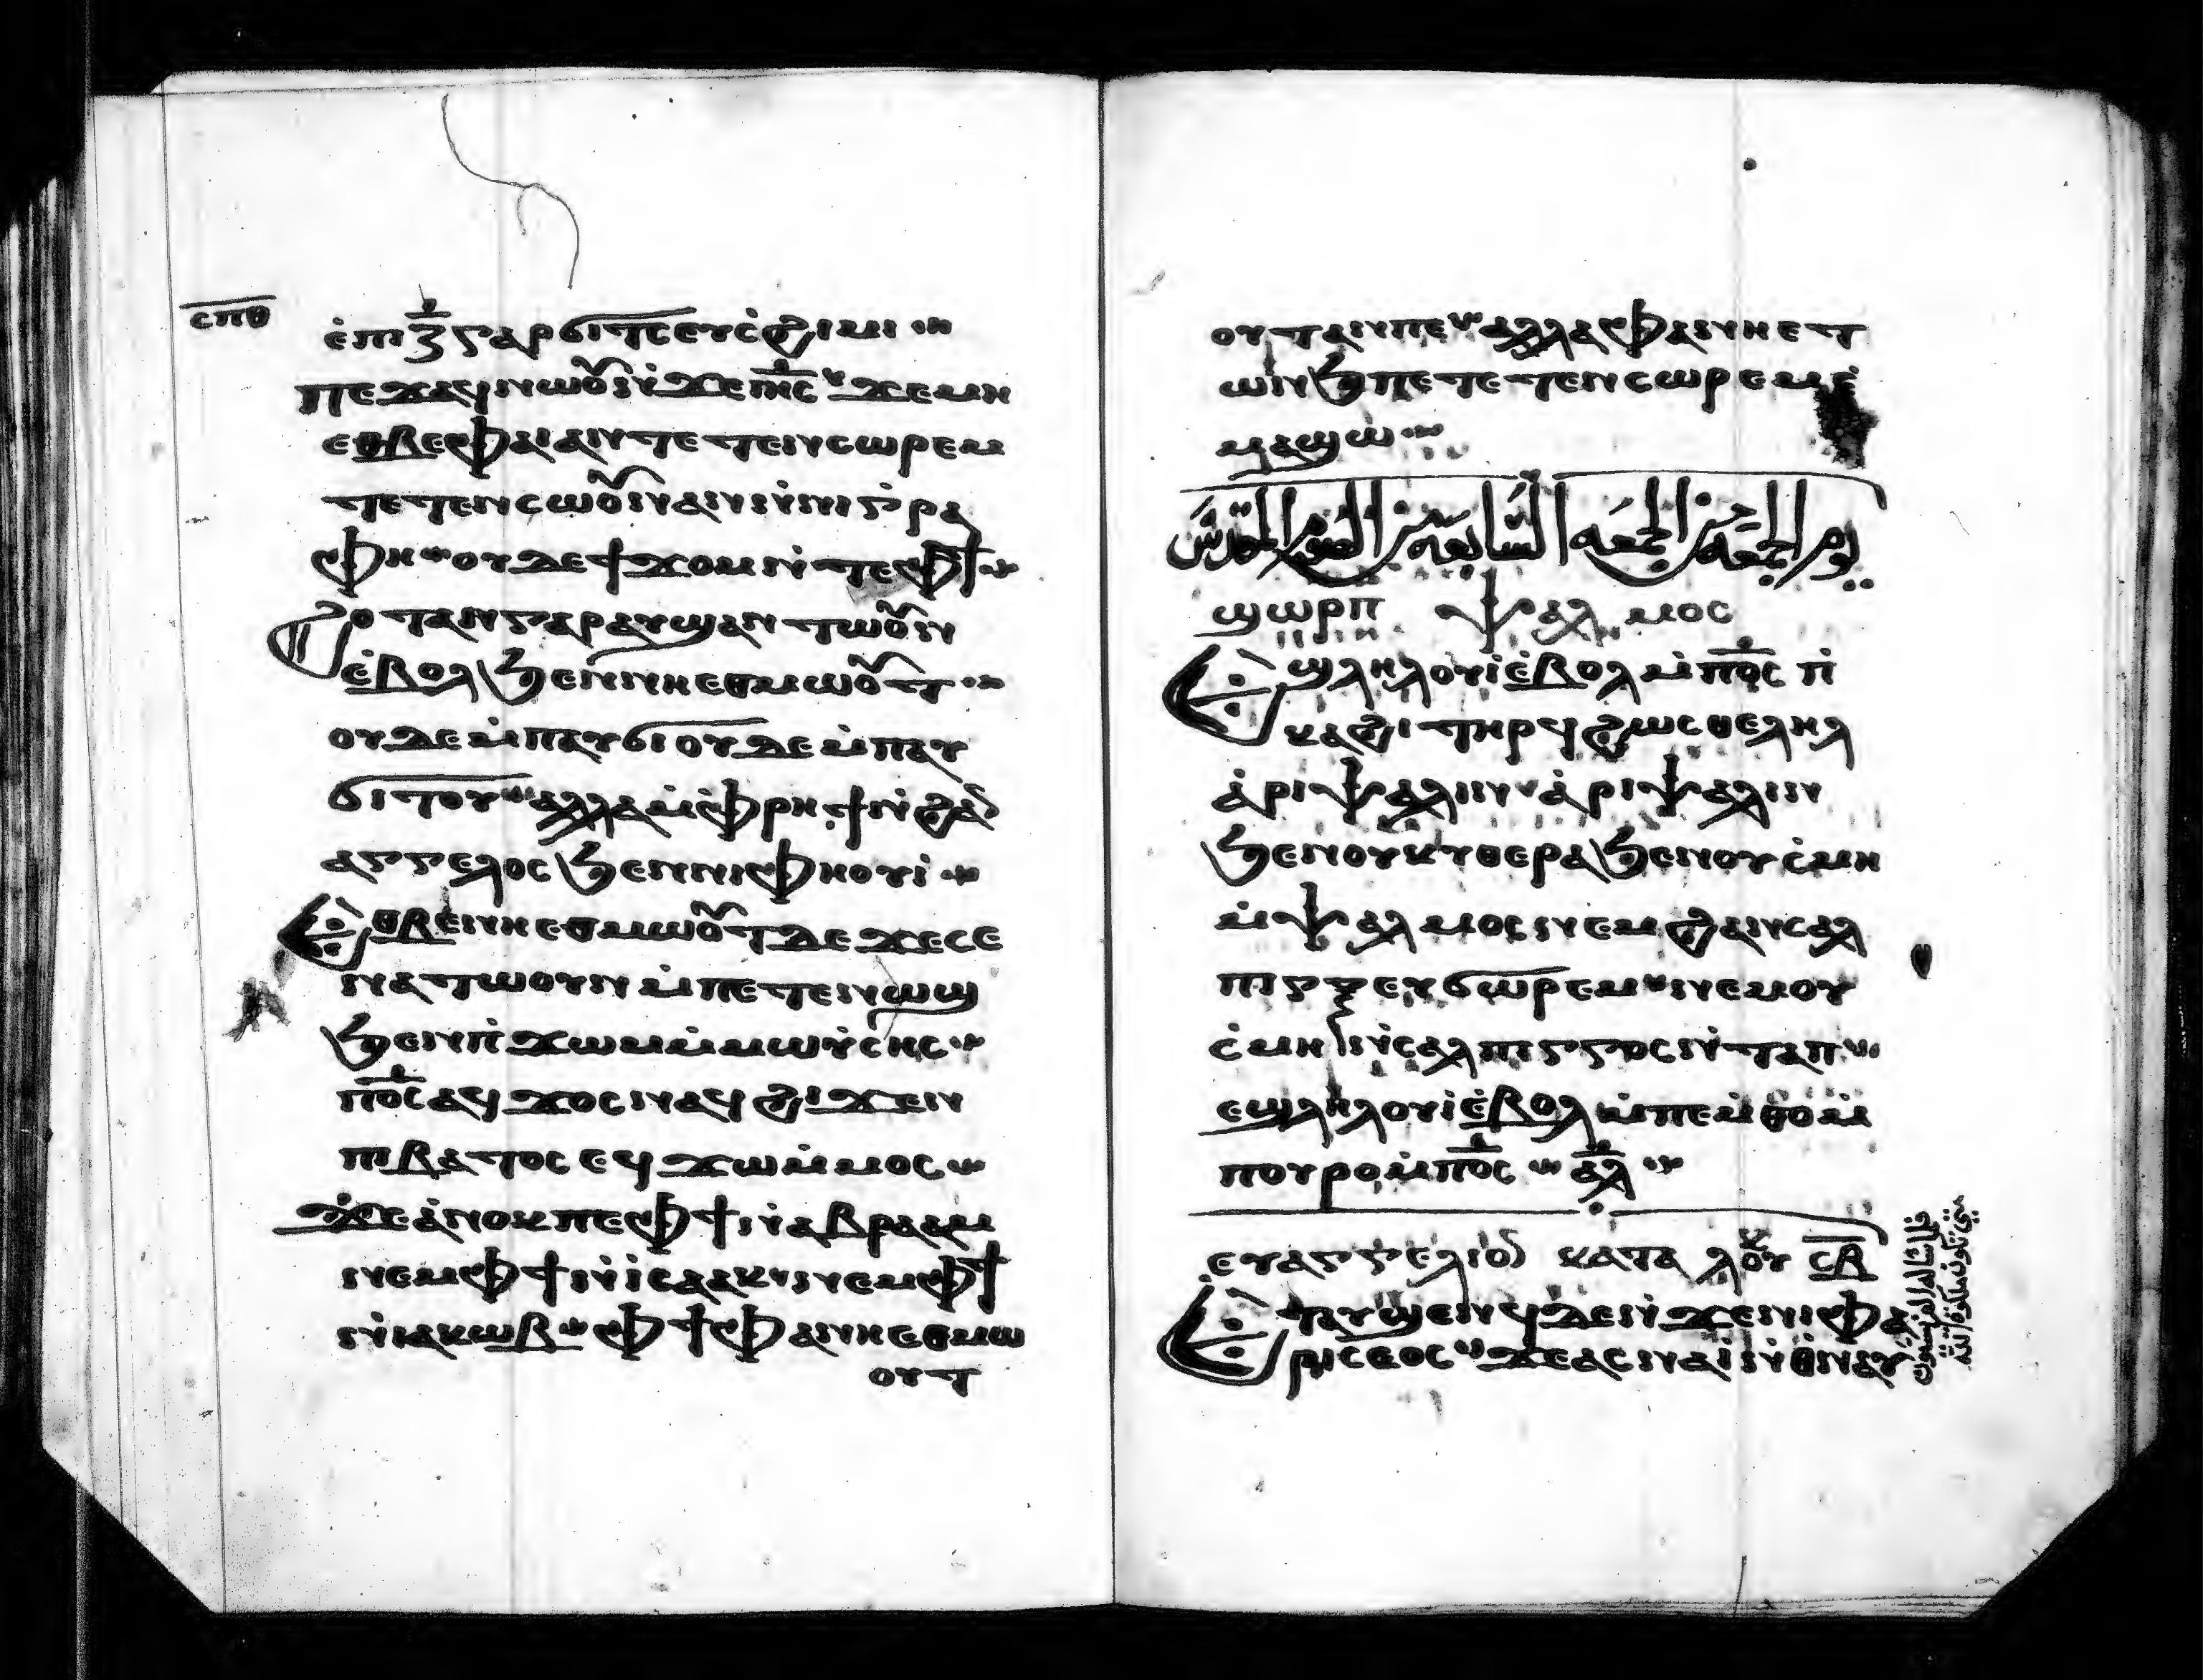 ⲥⲡⲑ
ⲉ̇ⲡⲓⲍ̅ ⲅⲁⲣ ϭⲓⲧⲥ ⲉⲩⲥ̇ϩⲓⲙⲓ
ⲡⲉϫⲁϥ ⲛⲱⲟⲩⲛ̇ϫⲉ ⲓⲏⲥ ϫⲉ ⲙⲏ
ⲉⲑⲃⲉ ⲫⲁⲓ ⲁⲛ ⲧⲉⲧⲉⲛⲥⲱⲣⲉⲙ
ⲧⲉⲧⲉⲛⲥⲱⲟⲩⲛ ⲁⲛ ⲛ̇ⲛⲓⲅ̇ⲣⲁ
ⲫⲏ ⲟⲩⲇⲉ ϯϫⲟⲙ ⲛ̇ⲧⲉ ⲫϯ
ϩⲟⲧⲁⲛ ⲅⲁⲣ ⲁⲩϣⲁⲛⲧⲱⲟⲩⲛ
ⲉ̇ⲃⲟⲗ ϧⲉⲛ ⲛⲏⲉⲑⲙⲱⲟⲩⲧ
ⲟⲩⲇⲉ ⲙ̇ⲡⲁⲩϭⲓ ⲟⲩⲇⲉ ⲙ̇ⲡⲁⲩ
ϭⲓⲧⲟⲩ ⲁⲗⲗⲁ ⲙ̇ⲫⲣⲏϯ ⲛ̇ϩⲁⲛ
ⲁⲅⲅⲉⲗⲟⲥ ϧⲉⲛ ⲛⲓⲫⲏⲟⲩⲓ̇
ⲉⲑⲃⲉ ⲛⲏⲉⲑⲙⲱⲟⲩⲧ ⲇⲉ ϫⲉ ⲥⲉ
ⲛⲁⲧⲱⲟⲩⲛ ⲙ̇ⲡⲉⲧⲉⲛⲱϣ
ϧⲉⲛ ⲡ̇ϫⲱⲙ ⲙ̇ⲙⲱⲩ̇ⲥⲏⲥ
ⲡⲟ̅ⲥ̅ ⲁϥϫⲟⲥ ⲛⲁϥ ϩⲓϫⲉⲛ
ⲡⲓⲃⲁⲧⲟⲥ ⲉϥϫⲱ ⲙ̇ⲙⲟⲥ
ϫⲉ ⲁ̇ⲛⲟⲕ ⲡⲉ ⲫϯ ⲛ̇ⲁⲃⲣⲁⲁⲙ
ⲛⲉⲙ ⲫϯ ⲛ̇ⲓ̇ⲥⲁⲁⲕ ⲛⲉⲙ ⲫϯ
ⲛ̇ⲓⲁⲕⲱⲃ ⲫϯ ⲫⲁ ⲛⲏⲉⲑⲙⲱ
ⲟⲩⲧ
ⲟⲩⲧ ⲁⲛ ⲡⲉ ⲁⲗⲗⲁ ⲫⲁ ⲛⲏⲉⲧ
ⲱⲛϧ ⲡⲉ ⲧⲉⲧⲉⲛⲥⲱⲣⲉⲙ ⲉ̇
ⲙⲁϣⲱ
يوم الجمعه من الجمعه السابعه من الصوم المقدس
ϣⲱⲣⲡ ⲯⲁⲗⲙⲟⲥ
ⲉϣⲗⲏⲗⲟⲩⲓ̇ ⲉ̇ⲃⲟⲗ ⲙ̇ⲡⲟ̅ⲥ̅ ⲡ̇
ⲕⲁϩⲓ ⲧⲏⲣϥ ϩⲱⲥ ⲑⲉⲗⲏⲗ
ⲁ̇ⲣⲓⲯⲁⲗⲓⲛ ⲁ̇ⲣⲓⲯⲁⲗⲓⲛ
ϧⲉⲛ ⲟⲩⲕⲩⲑⲉⲣⲁ ϧⲉⲛ ⲟⲩⲥ̇ⲙⲏ
ⲙ̇ⲯⲁⲗⲙⲟⲥ ⲛⲉⲙ ϩⲁⲛⲥⲁⲗ
ⲡⲓⲅⲅⲉⲩϭⲱⲣⲉⲙ ⲛⲉⲙ ⲟⲩ
ⲥ̇ⲙⲏ ⲛ̇ⲥⲁⲗⲡⲓⲅⲅⲟⲥ ⲛ̇ⲧⲁⲡ
ⲉϣⲗⲏⲗⲟⲩⲓ̇ ⲉ̇ⲃⲟⲗ ⲙ̇ⲡⲉⲙ̇ⲑⲟ ⲙ̇
ⲡⲟⲩⲣⲟ ⲙ̇ⲡⲟ̅ⲥ̅ ⲁⲗ
ⲉⲩⲁⲅⲅⲉⲗⲓⲟⲛ ⲕⲁⲧⲁ ⲗⲟⲩⲕ ⲥ̅ⲃ̅
ⲉⲧⲁⲩϣⲉⲛϥ ⲇⲉ ⲛ̇ϫⲉ ⲛⲓⲫⲁ
ⲣⲓⲥⲉⲟⲥ ϫⲉ ⲁⲥⲛⲁⲓ̇ ⲛ̇ⲑⲛⲁⲩ
فلما ساله الفريسيون
متى تكون ملكوة الله